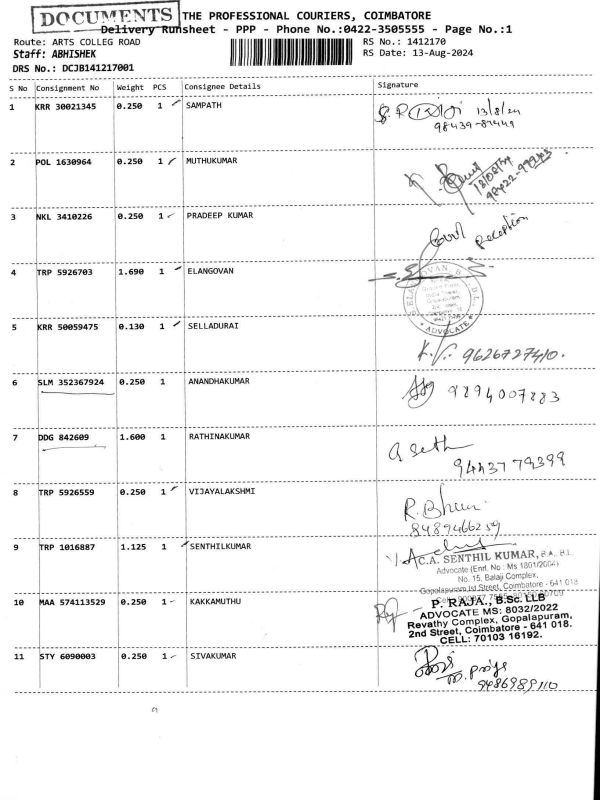 DOCUMENTS
THE PROFESSIONAL COURIERS, COIMBATORE
Delivery Runsheet - PPP - Phone No.:0422-3505555 - Page No.:1
Route: ARTS COLLEG ROAD RS No.: 1412170
Staff: ABHISHEK RS Date: 13-Aug-2024
DRS No.: DCJB141217001
S No Consignment No Weight PCS Consignee Details Signature
1 KRR 30021345 0.250 1 SAMPATH 13/8/24
98439-87449
2 POL 1630964 0.250 1 MUTHUKUMAR
3 NKL 3410226 0.250 1 PRADEEP KUMAR
Reception
4 TRP 5926703 1.690 1 ELANGOVAN
ADVOCATE
5 KRR 50059475 0.130 1 SELLADURAI
K.V. 9626727410.
6 SLM 352367924 0.250 1 ANANDHAKUMAR 9894007883
7 DDG 842609 1.600 1 RATHINAKUMAR
94437 79399
8 TRP 5926559 0.250 1 VIJAYALAKSHMI
8489466259
9 TRP 1016887 1.125 1 SENTHILKUMAR
C.A. SENTHIL KUMAR, B.A., B.L.
Advocate (Enrl. No : Ms 1801/2004)
No. 15, Balaji Complex,
Gopalapuram Ist Street, Coimbatore - 641 018
10 MAA 574113529 0.250 1 KAKKAMUTHU
P. RAJA., B.Sc. LLB
ADVOCATE MS: 8032/2022
Revathy Complex, Gopalapuram,
2nd Street, Coimbatore - 641 018.
CELL: 70103 16192.
11 STY 6090003 0.250 1 SIVAKUMAR
9486989110